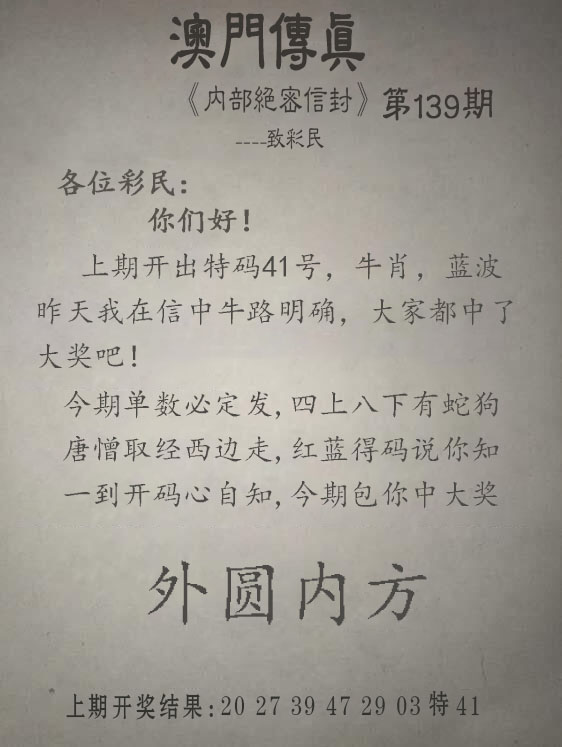 澳門傳真
《内部絕密信封》第139期
----致彩民
各位彩民：
你们好！
上期开出特码41号，牛肖，蓝波
昨天我在信中牛路明确，大家都中了
大奖吧！
今期单数必定发,四上八下有蛇狗
唐憎取经西边走,红蓝得码说你知
一到开码心自知,今期包你中大奖
外圆内方
上期开奖结果:20 27 39 47 29 03 特 41